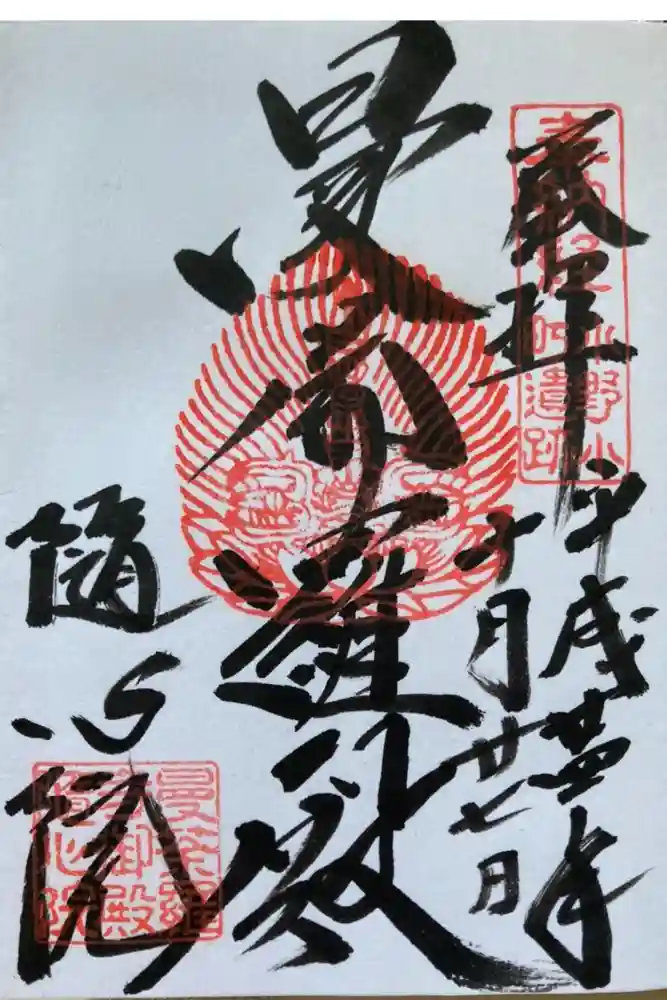 奉拝
平成廿四年
十月廿七日
曼荼羅殿
隨心院
小野小
町遺跡
曼荼羅
寺御殿
隨心院